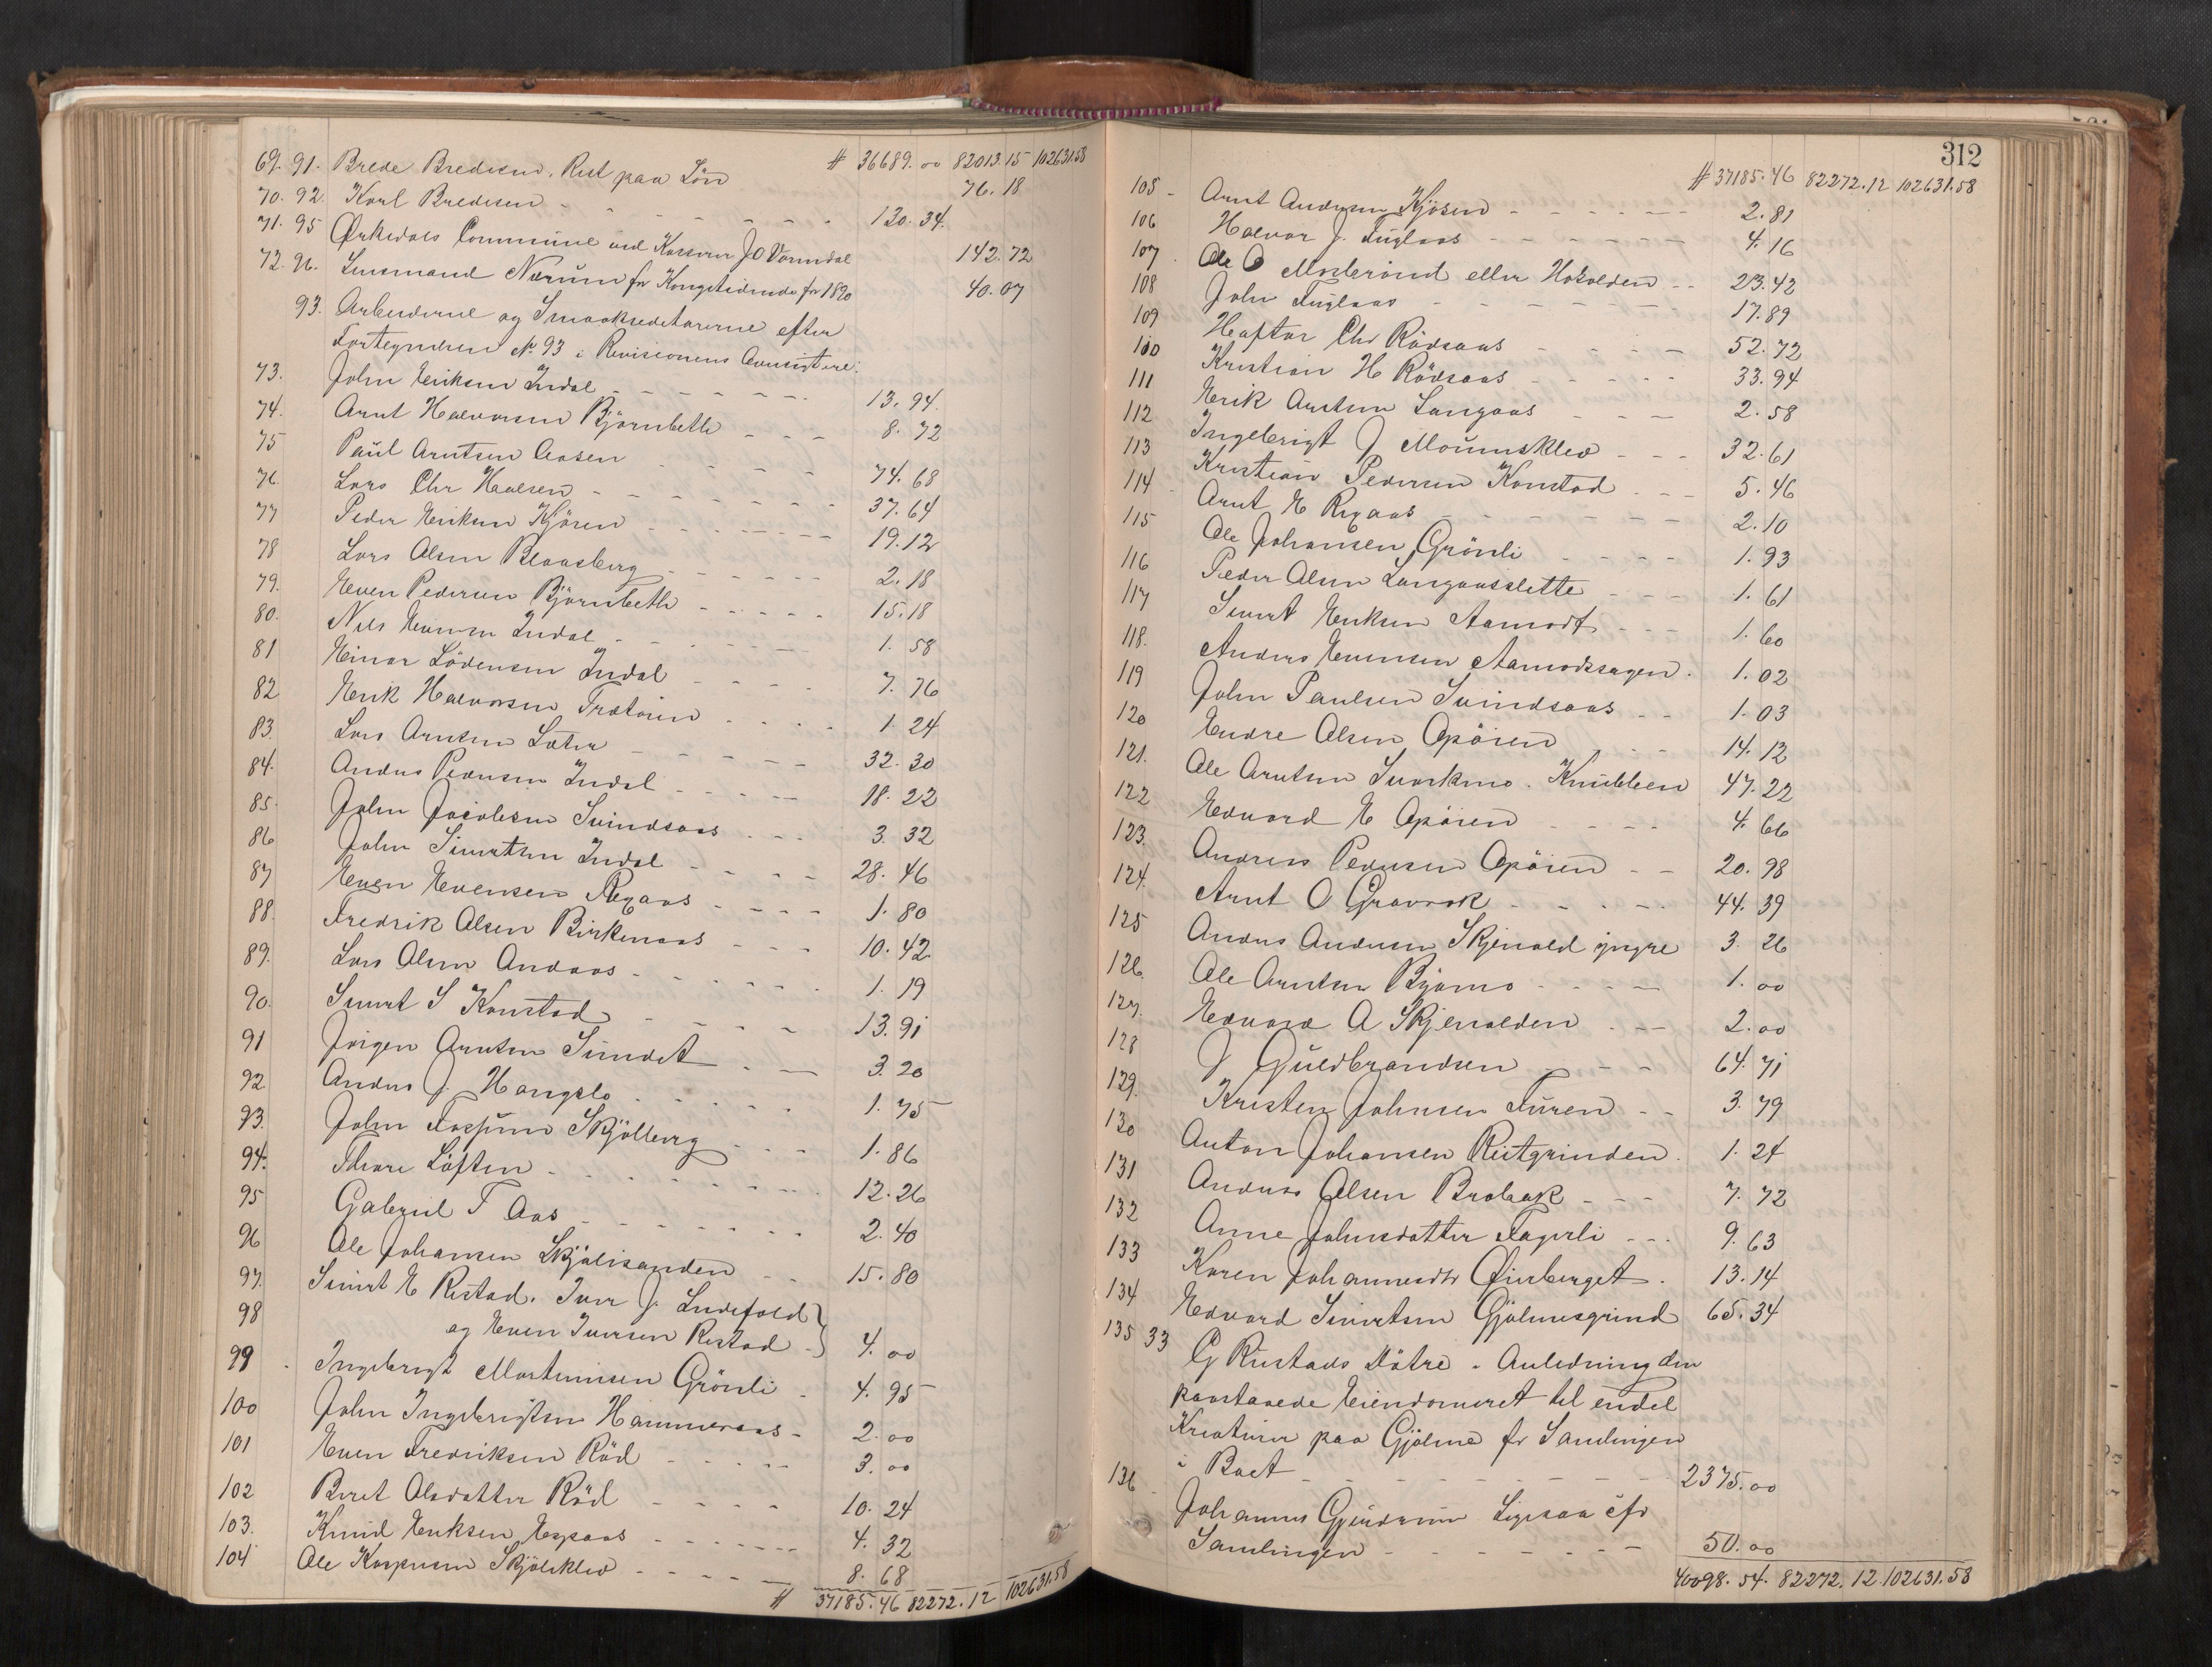 # 36689.00 82013.15 102631.58
69. 91. Brede Bredesen. Rest paa Løn 76.18
70. 92. Karl Bredesen - - - 130.34.
71. 95 Ørkedals Commune ved Kasserer J O Vormdal 142.72
72. 96. Lensmand Nærum for Kongetidende for 1890 40.07
93. Arbeiderne og Smaakreditorerne efter
Fortegnelsen No. 93 i Revisionens Concipt ere:
73. John Eriksen Indal - - - 13.94.
74. Arnt Halvorsen Björnbeth - - - 8.72
75 Paul Arntsen Aasen - - - 74.68
76. Lars Chr Halsen - - - 37.64
77 Peder Eriksen Kjören - - - 19.12
78 Lars Olsen Blaasberg - - - 2.18
79. Even Pedersen Björnbeth - - - 15.18
80. Nils Evensen Indal - - - 1.58
81 Einar Lödensen Indal - - - 7.76
82 Erik Halvorsen - - - 1.24
83. Lars Arntsen Sæter - - - 32.30
84. Anders Pedersen Indal - - - 18.22
85. John Jacobsen Svindsaas - - - 3.32
86 John Sivertsen Indal - - - 28.46
87 Even Evensen Regaas - - - 1.80
88. Fredrik Olsen Birkenaas - - - 10.42
89. Lars Olsen Andaas - - - 1.19
90. Sivert S Konstad - - - 13.91
91 Jörgen Arntsen Sundet - - - 3.20
92. Anders J. Hangslo - - - 1.75
93. John Skjölberg - - - 1.86
94. Thore Löften - - - 12.26
95 Gabriel T Aas - - - 2.40
96 Ole Johansen Skjölisanden - - 15.80
97. Sivert E Ristad. Iver J.
98 og Even Iversen Ristad - } 4.00
99 Ingebrigt Martinusen Grönli - 4.95
100 John Ingebrigtsen Hammeraas - 2.00
101 Even Fredriksen Röd - - - 3.00
102 Beret Olsdatter Röd - - - 10.24
103. Knud Eriksen - - - 4.32
104 Ole Kaspersen Skjölsklev - - - 8.68
# 37185.46 82272.12 102631.58
312
# 37185.46 82272.12 102631.58
105 - Arnt Andersen Kjösen - - - 2.81
106 Halvor J. Fuglaas - - - 4.16
107 Ole O eller Hokolden - - 23.42
108 John Fuglaas - - - 17.89
109 Haftor Chr Rödsaas - - - 52.72
110 Kristian H Rödsaas - - - 33.94
111 Erik Arntsen Langaas - - - 2.58
112 Ingebrigt J Moumsklev - - - 32.61
113 Kristian Pedersen Konstad - - - 5.46
114 Arnt E Regaas - - - 2.10
115 Ole Johansen Grönli - - - 1.93
116 Peder Olsen Langaasslette - - - 1.61
117 Sivert Eriksen Aamodt - - - 1.60
118. Anders Evensen Aamodssagen. 1.02
119 John Paulsen Svindsaas - - 1.03
120 Endre Olsen Opöien - - - 14.12
121. Ole Arntsen Svorkmo. Knubben 47.22
122 Edvard E Opöien - - - 4.66
123. Andreas Pedersen Opöien - - 20.98
124. Arnt O Gravrok - - - 44.39
125 Anders Andersen Skjenald yngre 3.26
126. Ole Arntsen Bjömo - - - 1.00
127. Edvard A Skjenalden - - - 2.00
128 J Guldbrandsen - - - 64.71
129. Kristen Johnsen Furen - - 3.79
130 Anton Johansen Ristgrinden. 1.24
131 Anders Olsen Brobak - - - 7.72
132 Anne Johnsdatter Fagerli - - - 9.63
133 Karen Johannesdtr Öiesberget. 13.14
134 Edvard Sivertsen Gjölmesgrind 65.34
135 33 G Ristads Dötre i Anledning den
paastaaede Eiendomsret til endel
Kreaturer paa Gjölme for Samlingen
i Boet - - - 2375.00
136 Johannes Gjeudrum Ligesaa efr
Samlingen - - - 50.00
40098.54. 82272.12. 102631.58